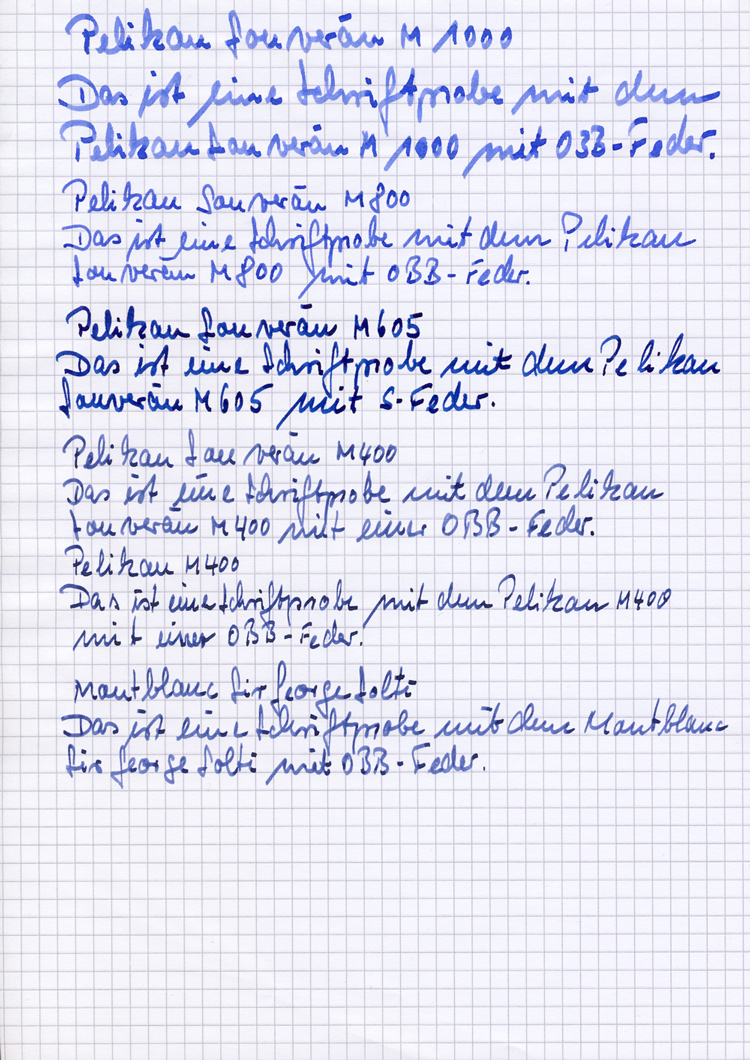 Pelikan Souverän M 1000
Das ist eine Schriftprobe mit dem
Pelikan Souverän M 1000 mit OBB-Feder.
Pelikan Souverän M800
Das ist eine Schriftprobe mit dem Pelikan
Souverän M800 mit OBB-Feder.
Pelikan Souverän M605
Das ist eine Schriftprobe mit dem Pelikan
Souverän M605 mit S-Feder.
Pelikan Souverän M400
Das ist eine Schriftprobe mit dem Pelikan
Souverän M400 mit einer OBB-Feder.
Pelikan M400
Das ist eine Schriftprobe mit dem Pelikan M400
mit einer OBB-Feder.
Montblanc Sir George Solti
Das ist eine Schriftprobe mit dem Montblanc
Sir George Solti mit OBB-Feder.